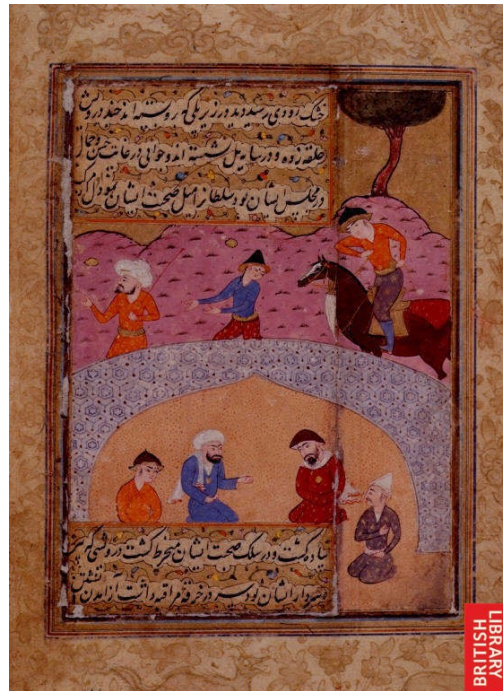 خشک رودی رسید دید در زیر پلی کهنه در پسته اند چند درویش
حلقه زده و در سایه پل نشسته اند و جوانی در غایت حسن و جمال
در مجلس ایشان بود سلطان را میل صحبت ایشان بخود
پیاده گشت و در سلک صحبت ایشان منخرط گشت درویشی که پیر
و سردار ایشان بود سر در خرقه مراقبه داشت از آمدن
BRITISH
LIBRARY